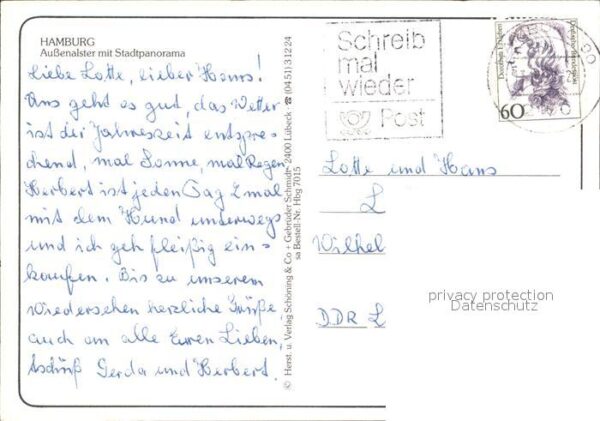 HAMBURG
Außenalster mit Stadtpanorama
Liebe Lotte, lieber Hans!
Uns geht es gut, das Wetter
ist der Jahreszeit entspre-
chend, mal Sonne, mal Regen
Herbert ist jeden Tag 2 mal
mit dem Hund unterwegs
und ich geh fleißig ein-
kaufen. Bis zu unserem
Wiedersehen herzliche Grüße,
auch an alle Euren Lieben,
tschüß Gerda und Herbert.
© Herst. u. Verlag Schöning & Co + Gebrüder Schmidt · 2400 Lübeck ☎ (04 51) 3 12 24
sa Bestell-Nr. Hbg 7015
Schreib
mal
wieder
Post
60
Lotte und Hans
L
Wilhel
DDR L
privacy protection
Datenschutz